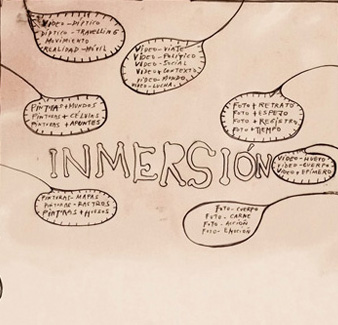 VIDEO-DÍPTICO
DÍPTICO-TRAVELLING
MOVIMIENTO
REALIDAD-MÓVIL
VIDEO-VIAJE
VIDEO-SOCIAL
VIDEO+CONTEXTO
VIDEO-MUNDO
VIDEO-LUCHA
PINTURAS+MUNDOS
PINTURAS+CÉLULAS
PINTURAS+APUNTES
FOTO+RETRATO
FOTO+ESPEJO
FOTO+REGISTRO
FOTO+TIEMPO
INMERSIÓN
VIDEO-NUEVO
VIDEO-CUERPO
VIDEO+EFÍMERO
PINTURAS-MAPAS
PINTURAS-RASTROS
PINTURAS+HUESOS
FOTO-CUERPO
FOTO-CARNE
FOTO-ACCIÓN
FOTO-EMOCIÓN